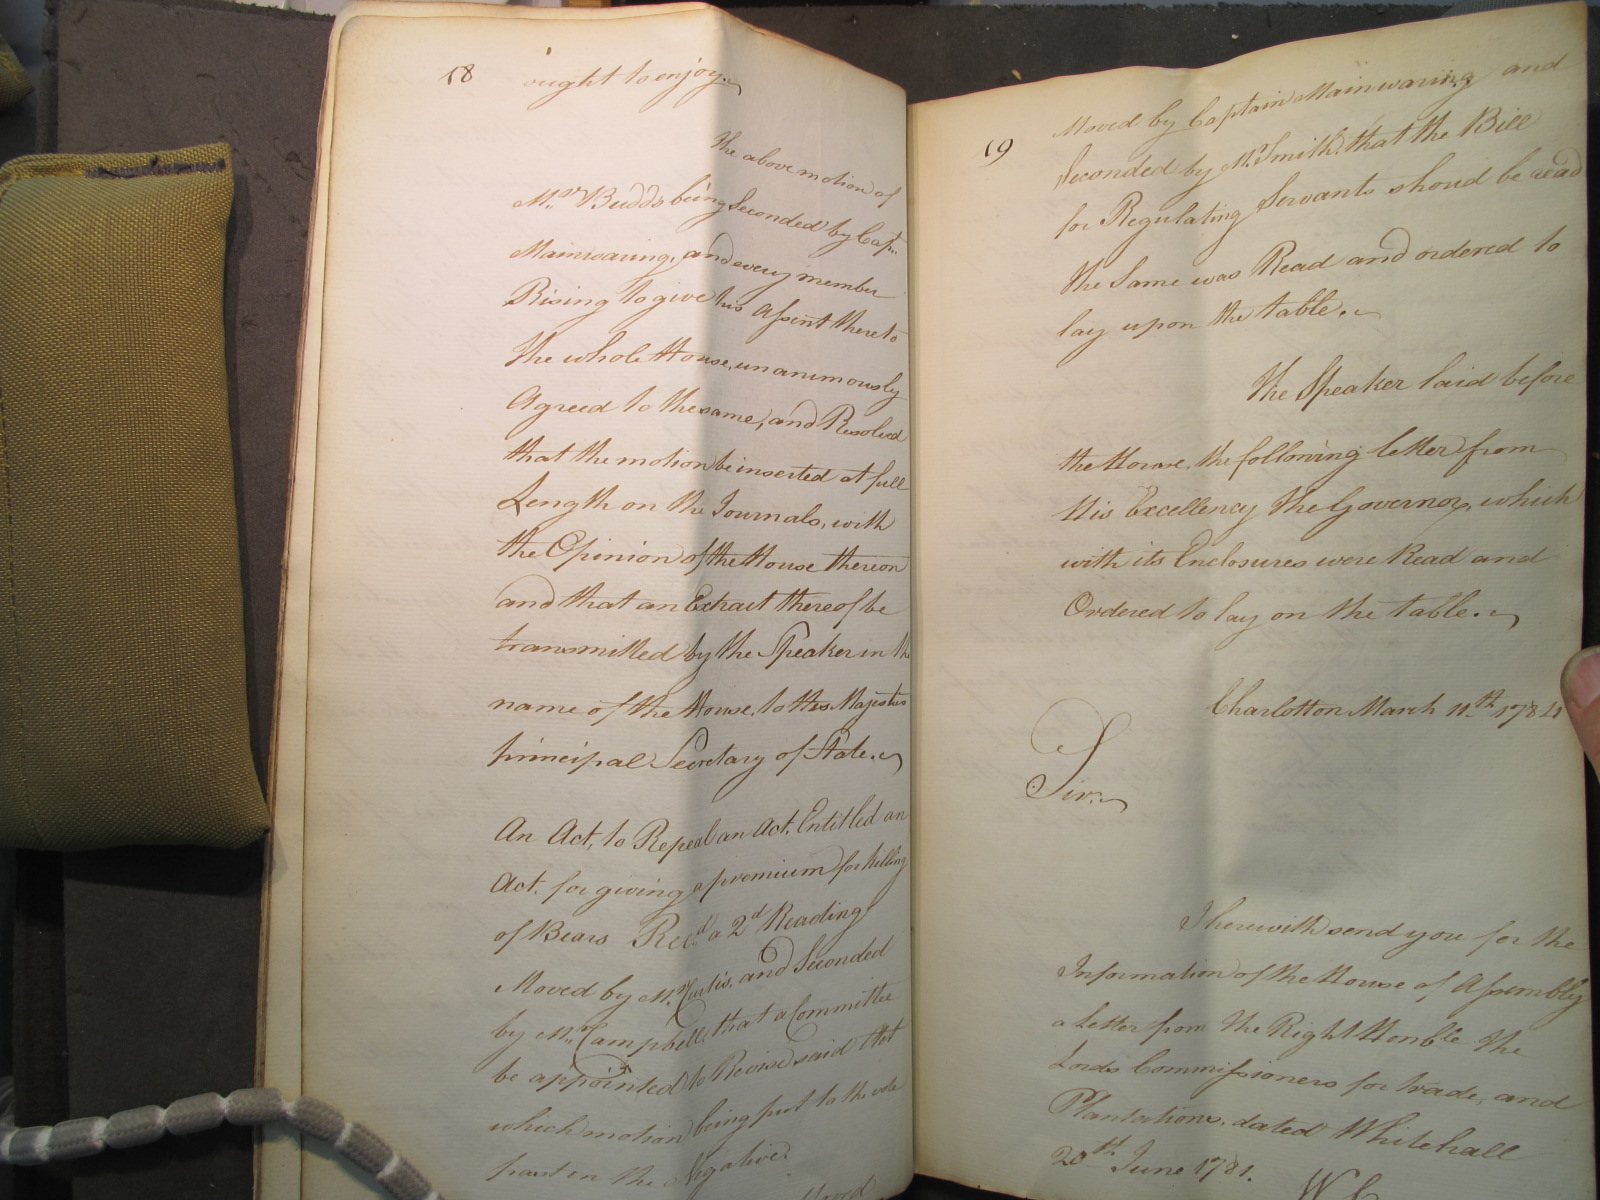 18
ought to enjoy.
The above motion of
Mr. Budds being Seconded by Capt.
Mainwaring, and every member
Rising to give his Assent thereto
the whole House, unanimously
Agreed to the same, and Resolved
that the motion be inserted at full
Length on the Journals, with
the Opinion of the House thereon
and that an Extract thereof be
transmitted by the Speaker in the
name of the House, to His Majesties
principal Secretary of State.
An Act, to Repeal an Act, Entitled an
Act, for giving a premium for killing
of Bears Recd. a 2d Reading
Moved by Mr. Curtis, and Seconded
by Mr. Campbell, that a Committee
be appointed to Revise said Act
which motion being put to the vote
past in the Negative.
Moved
19
Moved by Captain Mainwaring and
Seconded by Mr. Smith, that the Bill
for Regulating Servants should be read
the Same was Read and ordered to
lay upon the table.
The Speaker laid before
the House, the following letter from
His Excellency The Governor, which
with its Enclosures were Read and
Ordered to lay on the table.
Charlotton March 11th 178
Sir.
I herewith send you for the
Information of the House of Assembly
a Letter from The Right Honble The
Lords Commissioners for trade, and
Plantations, dated Whitehall
20th June 1781.